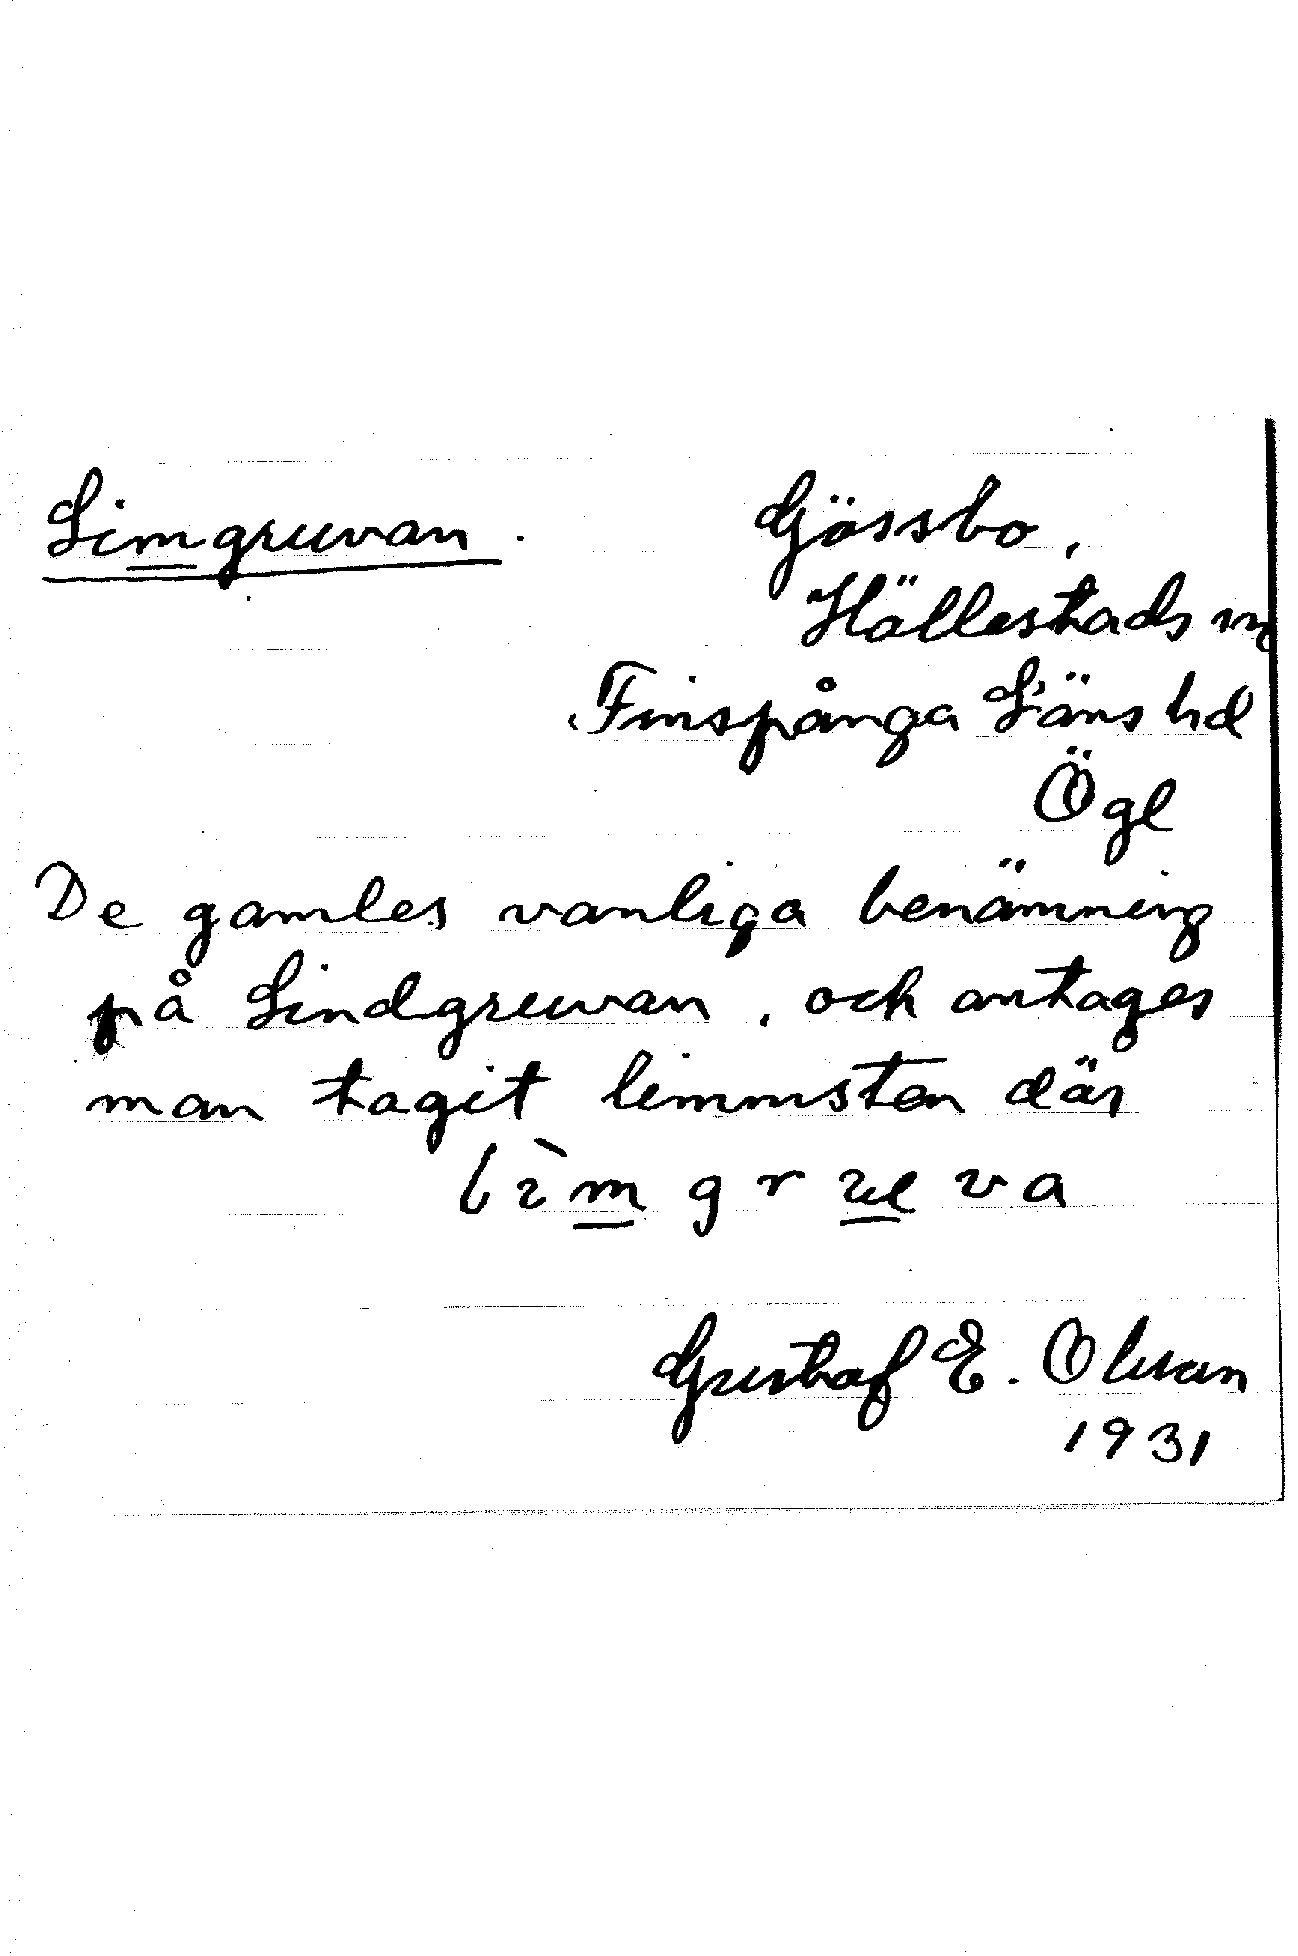 Limgruvan. Gössbo,
Hällestads sn
Finspånga Läns hd
Ögl
De gamles vanliga benämning
på Lindgruvan, och antages
man tagit limmsten där
lìmgruva
Gustaf E. Olsson
1931